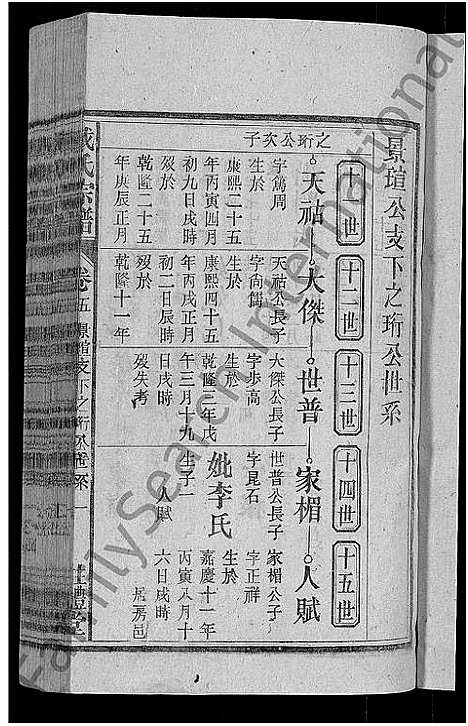 景瑄公支下之珩公世系
十一世 十二世 十三世 十四世 十五世
之珩公次子
天祜 大傑 世普 家楣 人賦
字篤周
生於
康熙二十五
年丙寅四月
初九日戌時
歿於
乾隆二十五
年庚辰正月
天祜公長子
字尚儒
生於
康熙四十五
年丙戌正月
初二日辰時
歿於
乾隆十一年
大傑公長子
字步高
生於
乾隆三年戊
年三月十九
日戌時
歿失考
世普公長子
字昆石
妣李氏
生子一
人賦
家楣公子
字正祥
生於
嘉慶十一年
丙寅八月十
六日戌時
居房邑
氏宗譜
卷五
景瑄支下之珩公世系
一
豊禮堂
FamilySearch International